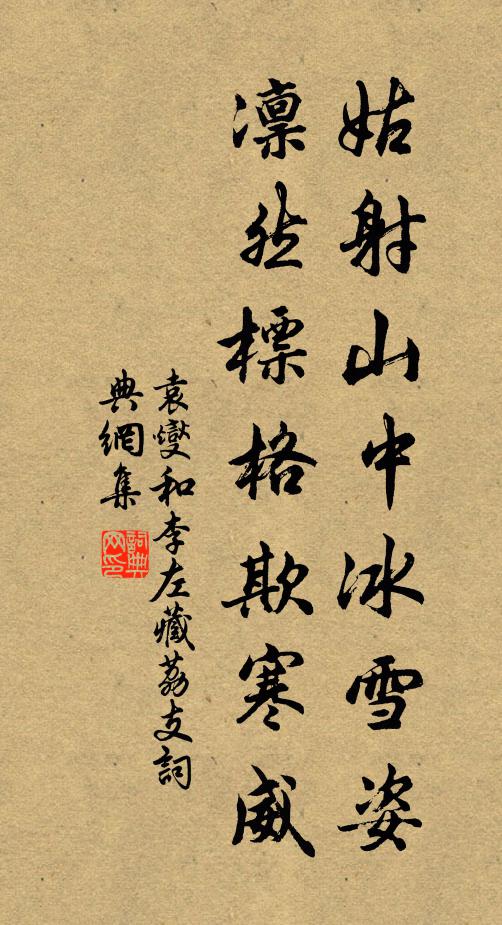 姑射山中冰雪姿
凛然標格欺寒威
袁燮和李左藏荔支詞
典網集
詞典網印